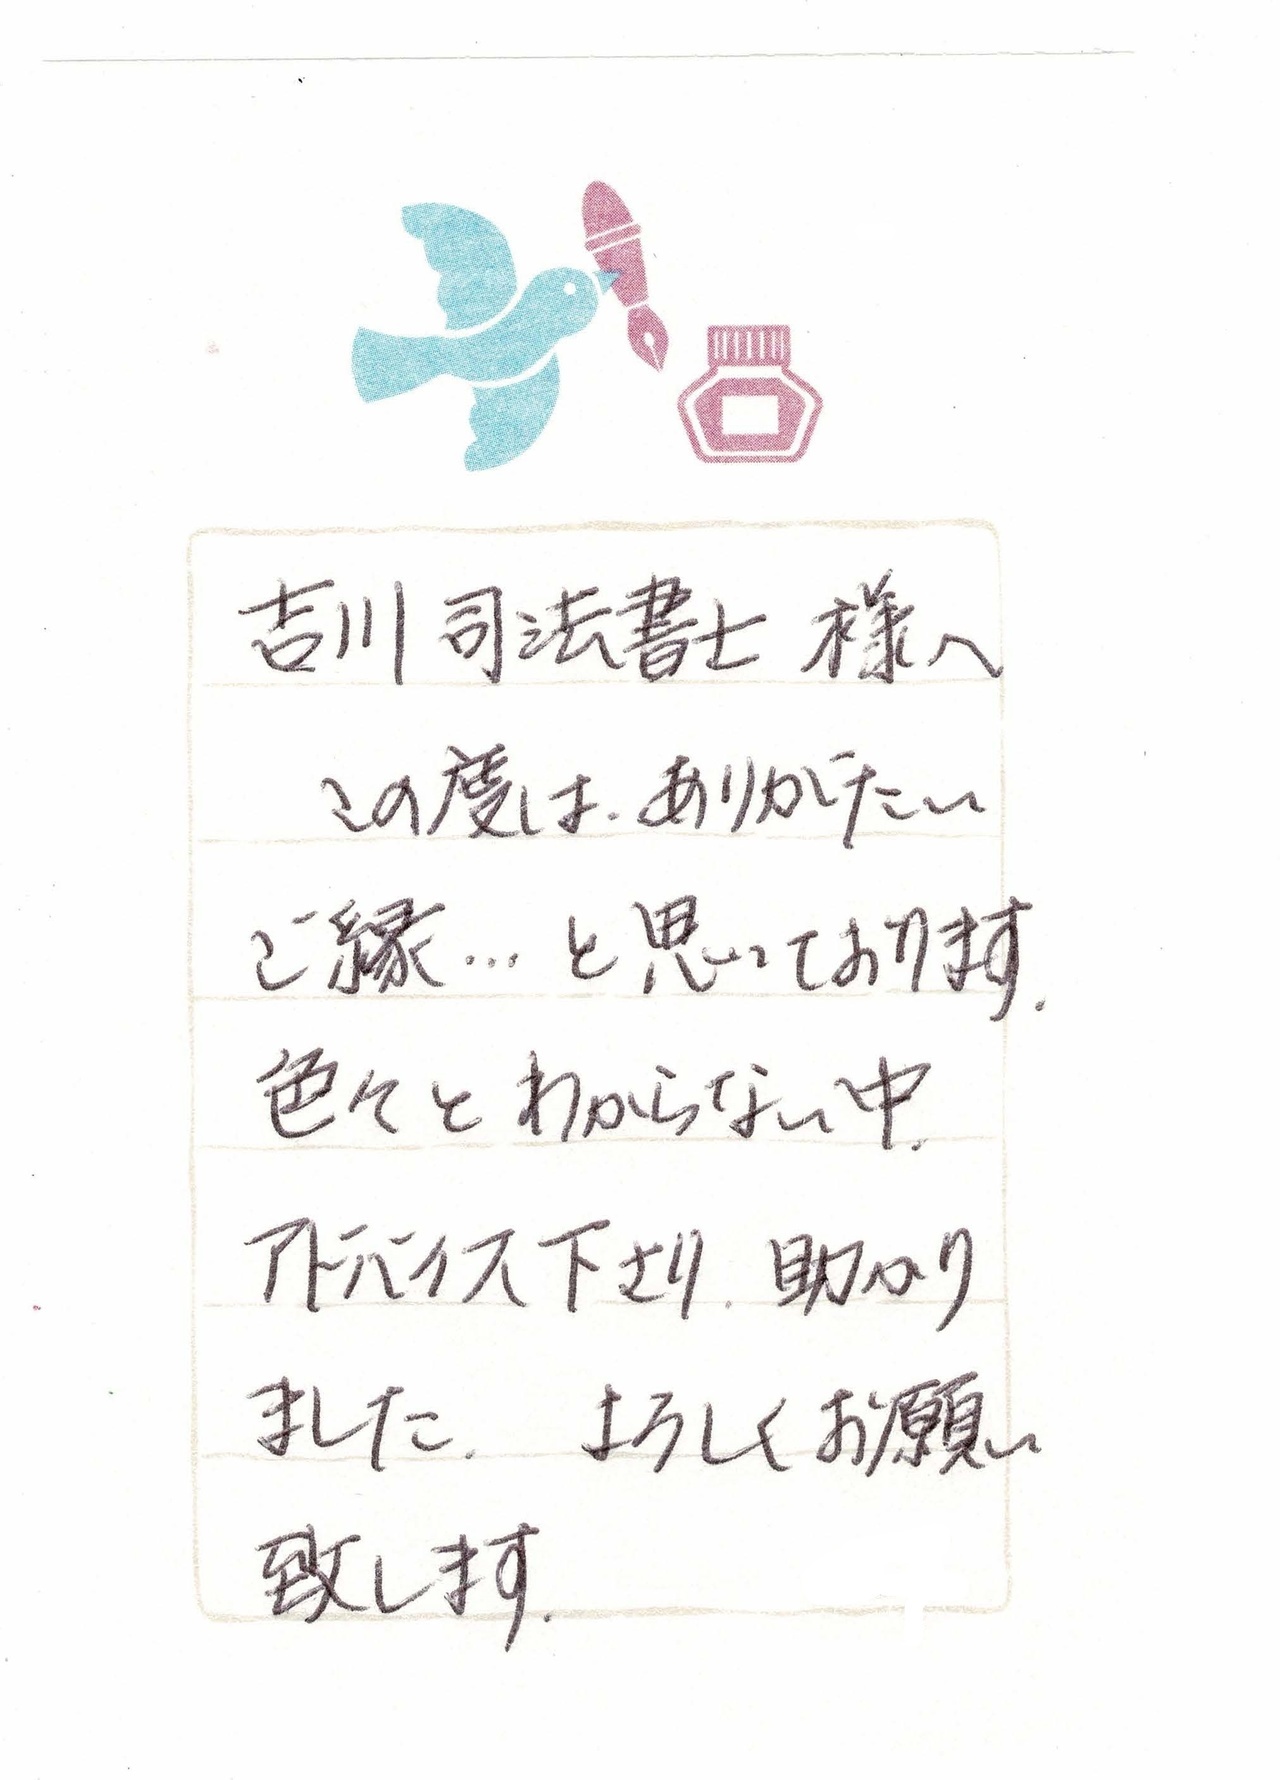 吉川 司法書士 様へ
この度は、ありがたい
ご縁… と思っております。
色々と わからない中、
アドバイス下さり、助かり
ました。 よろしくお願い
致します。